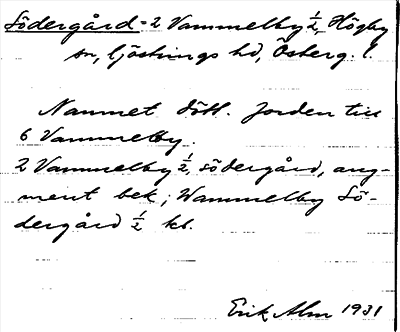 Södergård = 2 Vammelby ½, Högby
sn, Göstrings hd, Österg. l.
Namnet dött. Jorden till
6 Vammelby.
2 Vammelby ½, södergård, aug-
ment bek; Wammelby Sö-
dergård ½ kr.
Erik Alm 1931